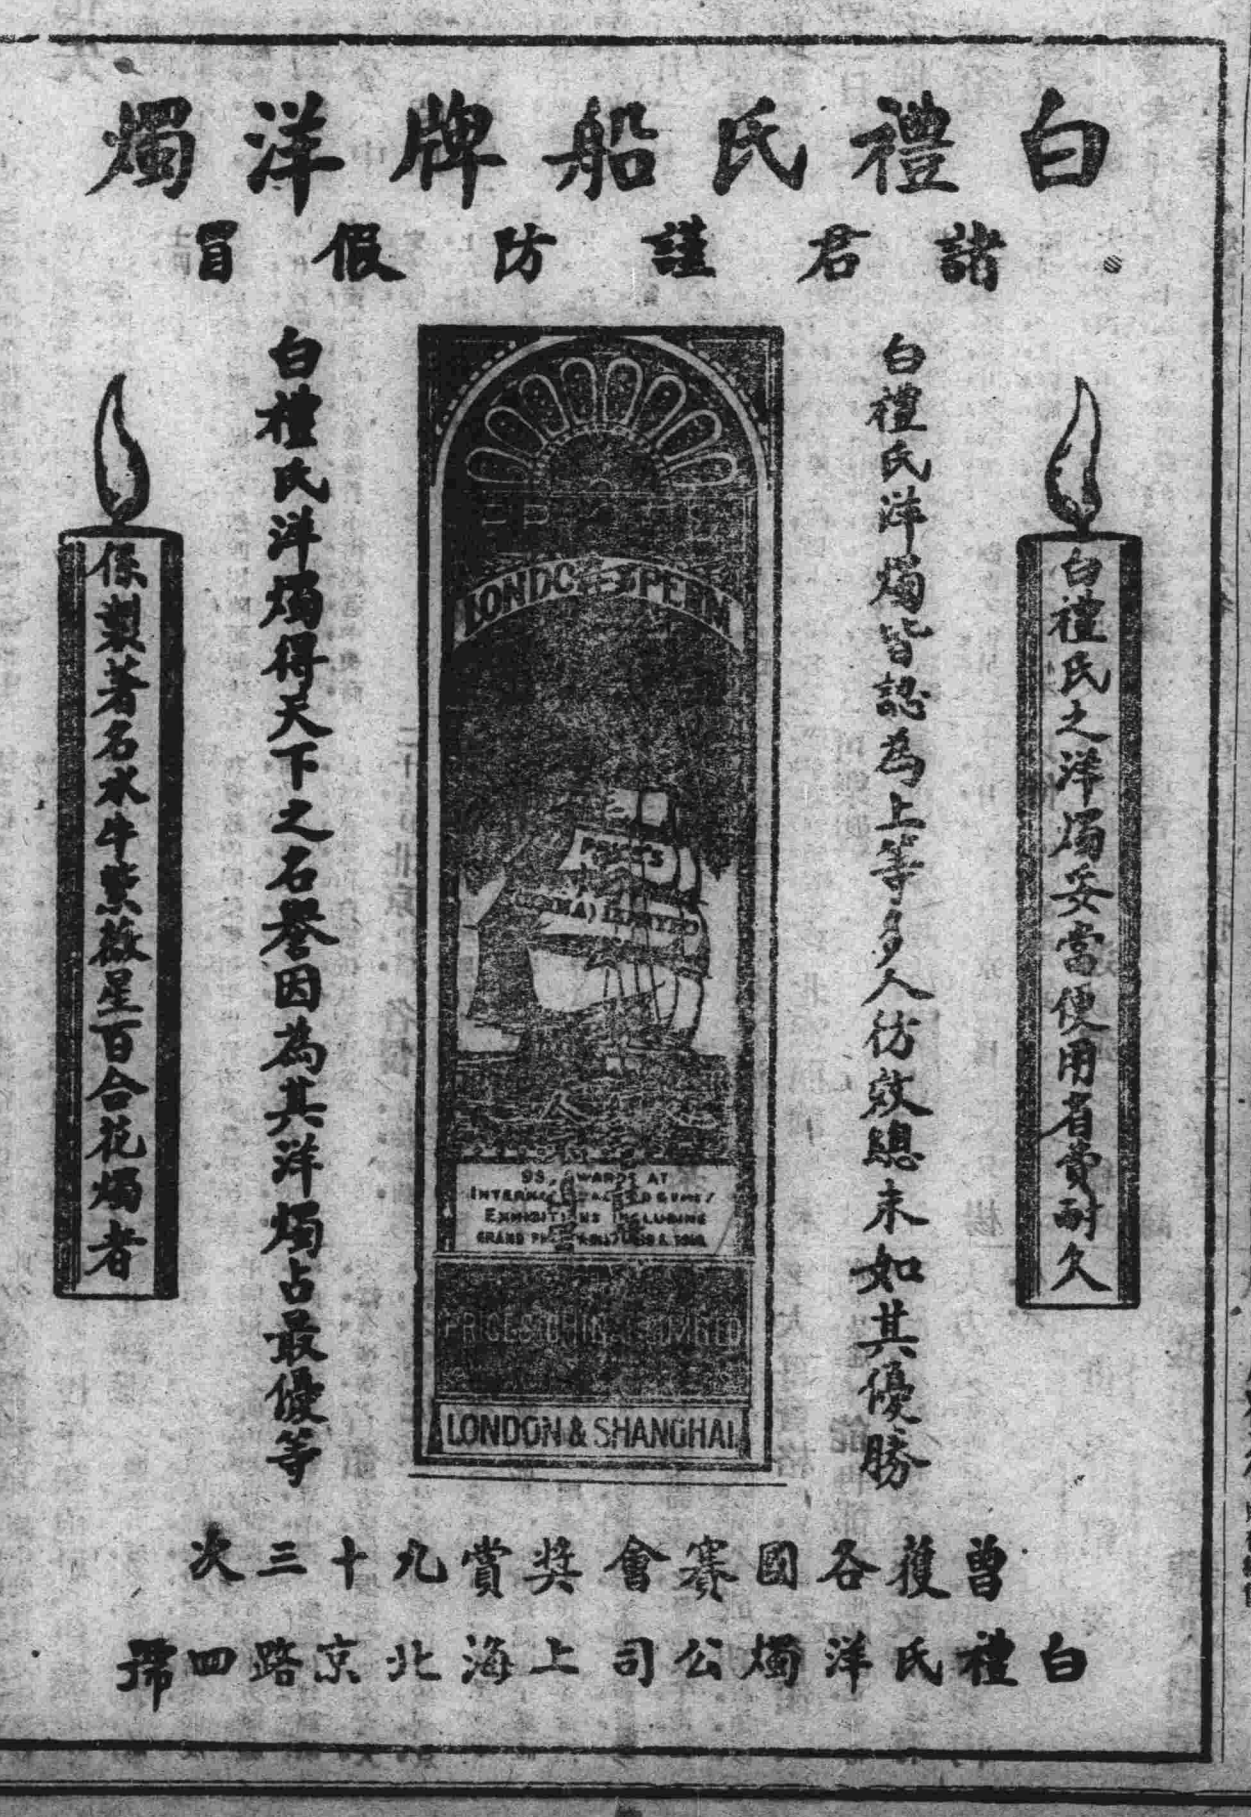 白禮氏船牌洋燭
諸君謹防假冒
白禮氏之洋燭妥當便用省費耐久
白禮氏洋燭皆認為上等多人彷效總未如其優勝
LONDON SPERM
PRICE'S
(CHINA) LIMITED
93 AWARDS AT
EXHIBITIONS INCLUDING
PRICE'S (CHINA) LIMITED
LONDON & SHANGHAI
白禮氏洋燭得天下之名譽因為其洋燭占最優等
係製著名水牛紫薇星百合花燭者
曾獲各國賽會獎賞九十三次
白禮氏洋燭公司上海北京路四號